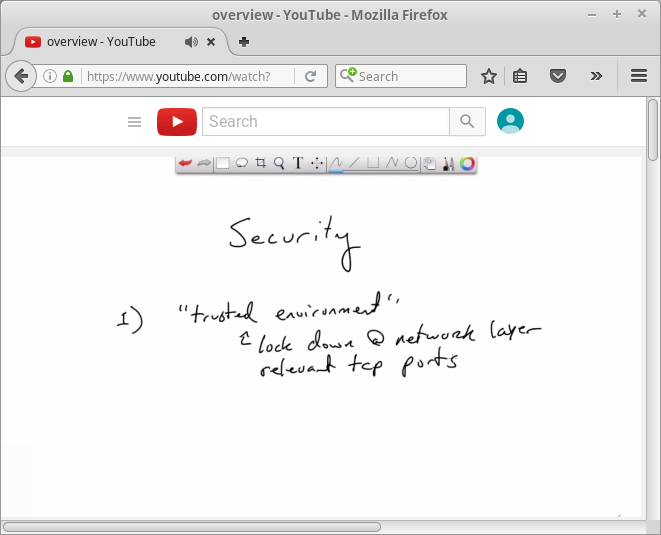 overview - YouTube - Mozilla Firefox
overview - YouTube
https://www.youtube.com/watch?
Search
Search
T
Security
1) "trusted environment"
lock down @ network layer
relevant tcp ports